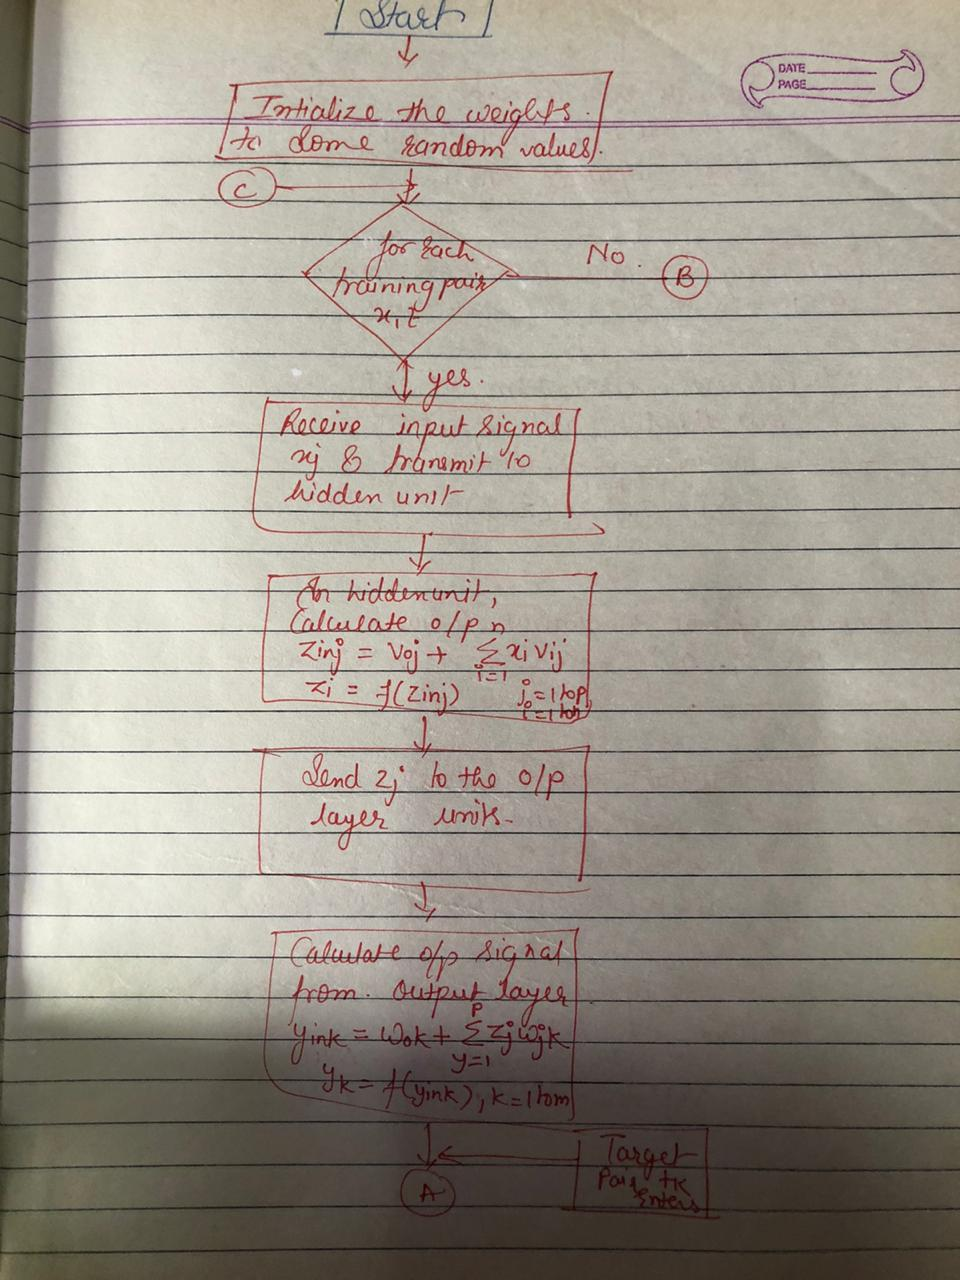 Start
DATE
PAGE
Intialize the weights.
to some random values.
C
for each
training pair
x, t
No.
B
yes.
Receive input signal
xj & transmit to
hidden unit
In hidden unit,
Calculate o/p n
Zinj = Voj + Σ xi vij
i=1
zi = f(Zinj) j=1 to p
i=1 to n
Send zj to the o/p
layer units.
Calculate o/p signal
from output layer
p
yink = wok + Σ zj wjk
y=1
yk = f(yink), k=1 to m
Target
Pair tk
enters
A